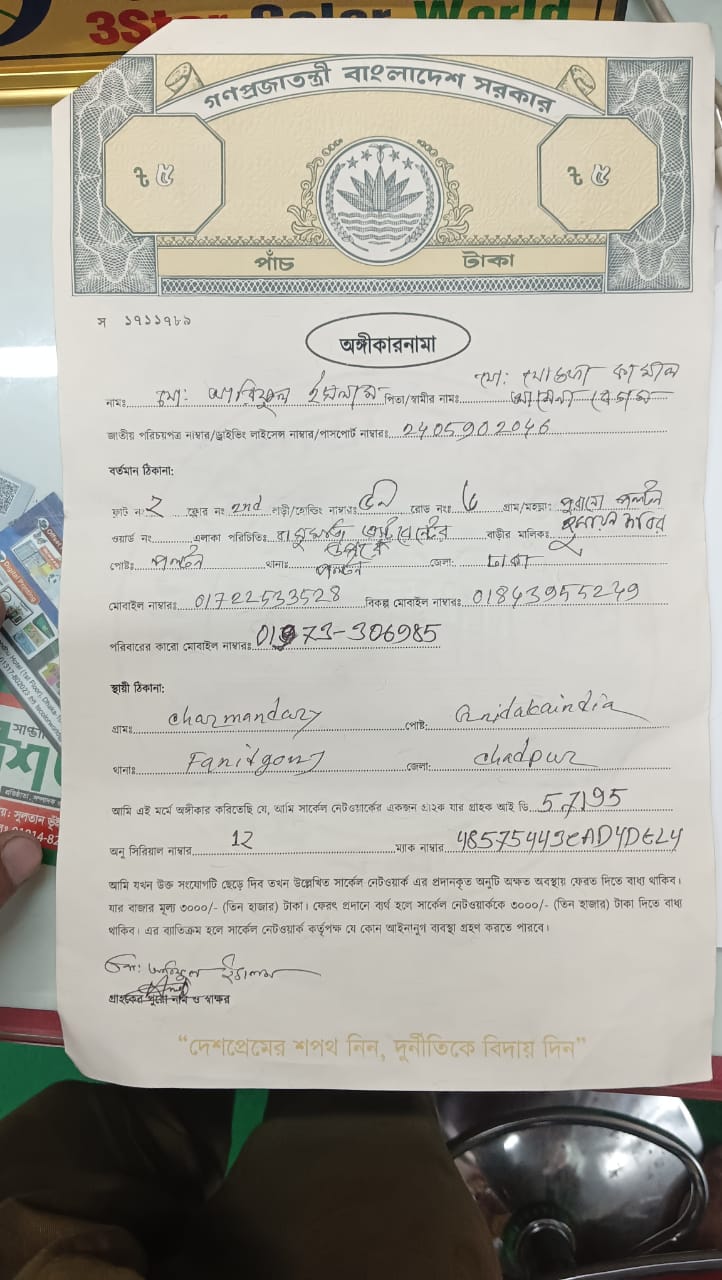 3Star Solar World
গণপ্রজাতন্ত্রী বাংলাদেশ সরকার
ট ৫ ট ৫
পাঁচ টাকা
স ১৭১১৭৮৯
অঙ্গীকারনামা
মো: মোস্তফা কামাল
নামঃ মো: আরিফুল ইসলাম পিতা/স্বামীর নাম: আমেনা বেগম
জাতীয় পরিচয়পত্র নাম্বার/ড্রাইভিং লাইসেন্স নাম্বার/পাসপোর্ট নাম্বারঃ 2405902046
বর্তমান ঠিকানা:
ফ্লাট নং 2 ফ্লোর নং 2nd বাড়ী/হোল্ডিং নাম্বারঃ রোড নংঃ ৬ গ্রাম/মহল্লা: পুরানো পল্টন
ওয়ার্ড নং এলাকা পরিচিতিঃ বাড়ীর মালিকঃ
পোষ্টঃ পল্টন থানাঃ পল্টন জেলা: ঢাকা
মোবাইল নাম্বারঃ 01722533528 বিকল্প মোবাইল নাম্বারঃ 01843955249
পরিবারের কারো মোবাইল নাম্বারঃ 01973-306985
স্থায়ী ঠিকানা:
গ্রামঃ Charmandary পোষ্ট:
থানাঃ Faridgonj জেলা: Chadpur
আমি এই মর্মে অঙ্গীকার করিতেছি যে, আমি সার্কেল নেটওয়ার্কের একজন গ্রাহক যার গ্রাহক আই ডি 57195
অনু সিরিয়াল নাম্বার 12 ম্যাক নাম্বার
আমি যখন উক্ত সংযোগটি ছেড়ে দিব তখন উল্লেখিত সার্কেল নেটওয়ার্ক এর প্রদানকৃত অনুটি অক্ষত অবস্থায় ফেরত দিতে বাধ্য থাকিব।
যার বাজার মূল্য ৩০০০/- (তিন হাজার) টাকা। ফেরৎ প্রদানে ব্যর্থ হলে সার্কেল নেটওয়ার্ককে ৩০০০/- (তিন হাজার) টাকা দিতে বাধ্য
থাকিব। এর ব্যতিক্রম হলে সার্কেল নেটওয়ার্ক কর্তৃপক্ষ যে কোন আইনানুগ ব্যবস্থা গ্রহণ করতে পারবে।
মো: আরিফুল ইসলাম
গ্রাহকের পুরো নাম ও স্বাক্ষর
“দেশপ্রেমের শপথ নিন, দুর্নীতিকে বিদায় দিন”